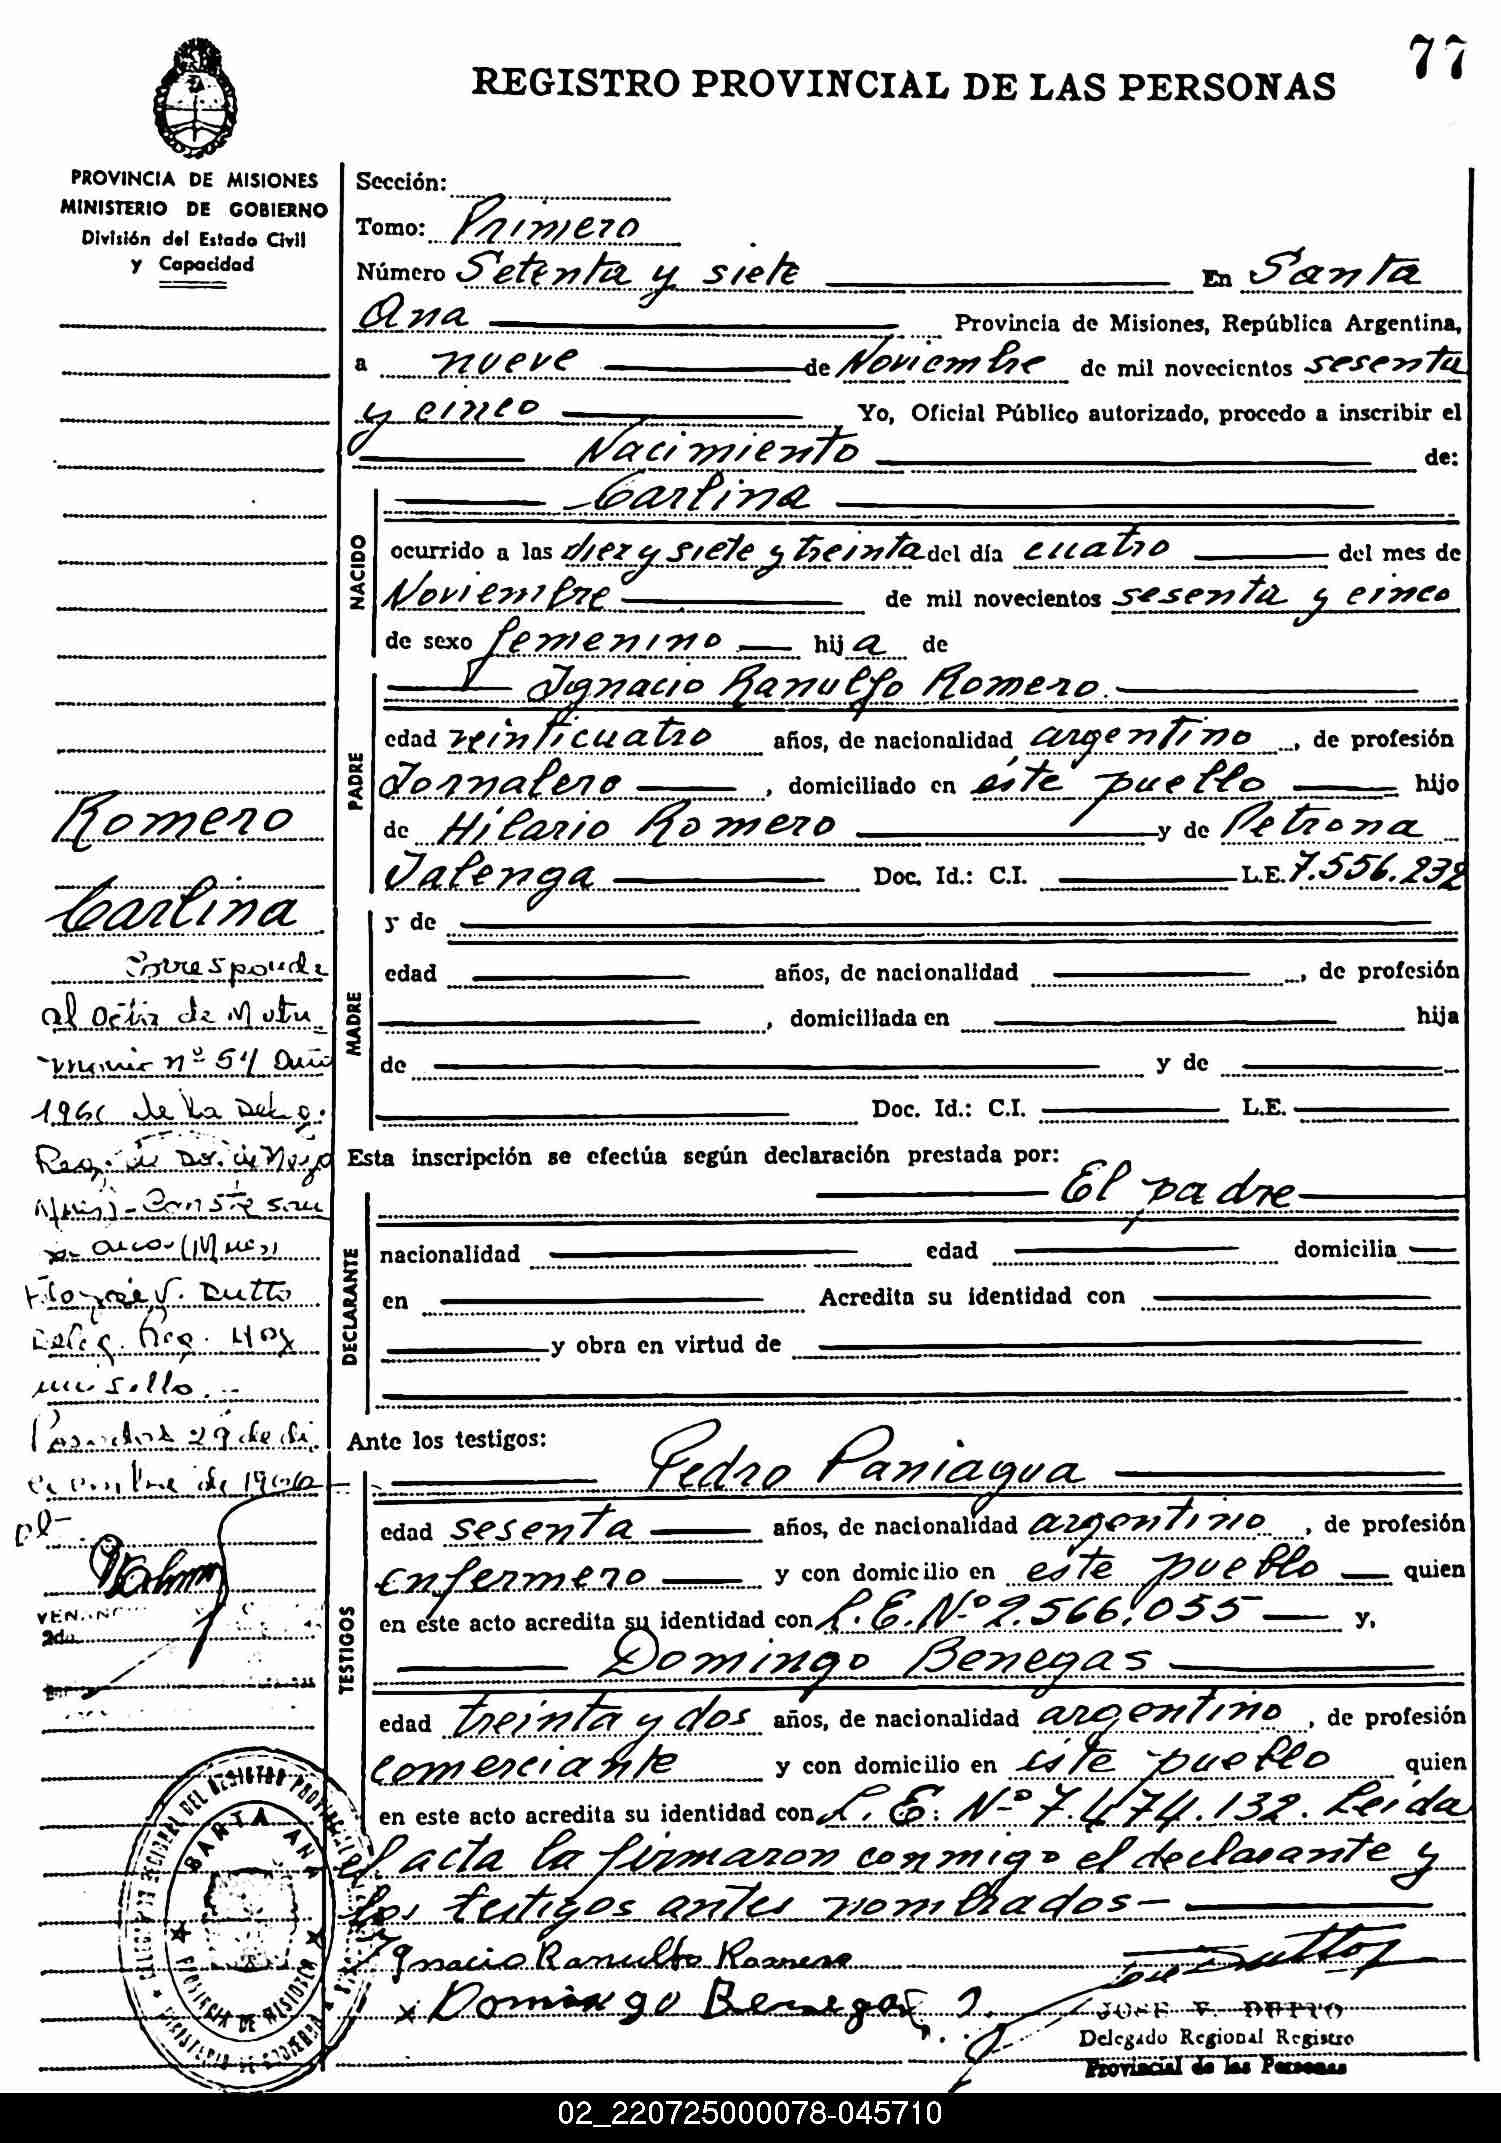 77
REGISTRO PROVINCIAL DE LAS PERSONAS
PROVINCIA DE MISIONES
MINISTERIO DE GOBIERNO
División del Estado Civil
y Capacidad
Sección:
Tomo: Primero
Número Setenta y siete En Santa
Ana Provincia de Misiones, República Argentina,
a nueve de Noviembre de mil novecientos sesenta
y cinco Yo, Oficial Público autorizado, procedo a inscribir el
Nacimiento de:
NACIDO
Carlina
ocurrido a las diez y siete y treinta del día cuatro del mes de
Noviembre de mil novecientos sesenta y cinco
de sexo femenino hija de
PADRE
Ignacio Ranulfo Romero.
edad veinticuatro años, de nacionalidad argentino, de profesión
Jornalero, domiciliado en éste pueblo hijo
de Hilario Romero y de Petrona
Jalenga Doc. Id.: C.I. L.E. 7.556.232
MADRE
y de
edad años, de nacionalidad , de profesión
, domiciliada en hija
de y de
Doc. Id.: C.I. L.E.
Esta inscripción se efectúa según declaración prestada por:
El padre
DECLARANTE
nacionalidad edad domicilia
en Acredita su identidad con
y obra en virtud de
Ante los testigos:
TESTIGOS
Pedro Paniagua
edad sesenta años, de nacionalidad argentino, de profesión
enfermero y con domicilio en este pueblo quien
en este acto acredita su identidad con L.E. Nº 2.566.055 y,
Domingo Benegas
edad treinta y dos años, de nacionalidad argentino, de profesión
comerciante y con domicilio en éste pueblo quien
en este acto acredita su identidad con L.E: Nº 7.474.132. Leida
el acta la firmaron conmigo el declarante y
los testigos antes nombrados-
Ignacio Ranulfo Romero
x Domingo Benegas
JOSE V. DUTTO
Delegado Regional Registro
Provincial de las Personas
Romero
Carlina
Corresponde
al Acta de Matri
monio nº 54
de la Deleg.
Conste
Fdo José V. Dutto
Deleg. Reg. Hay
un sello.
Posadas 29 de di
ciembre de 1966
SANTA ANA
PROVINCIA DE MISIONES
02_220725000078-045710